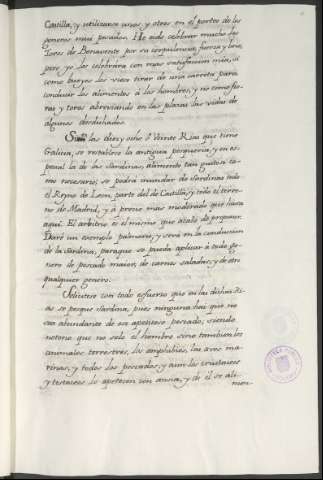 Castilla, y utilizarse unos, y otros en el porteo de los
generos mui pesados. He oido celebrar mucho los
Toros de Benavente por su corpulencia, fuerza y brio,
pero yo los celebraria con mas satisfaccion mia, si
como bueyes los viese tirar de una carreta para
conducir los alimentos á los hombres, y no como fie-
ras y toros abreviando en las plazas las vidas de
algunos desdichados.
Si las diez y ocho ó Veinte Rias que tiene
Galicia, se restablece la antigua pesqueria, y en es-
pecial la de las Sardinas, alimento tan gustoso co-
mo necesario; se podra inundar de sardinas todo
el Reyno de Leon, parte del de Castilla, y todo el terre-
no de Madrid, y á precio mas moderado que hasta
aqui. El arbitrio es el mismo que acabo de proponer.
Daré un exemplo palmario, y será en la conduccion
de la Sardina, para que se pueda aplicar á todo ge-
nero de pescado maior, de carnes saladas, y de otro
qualquier genero.
Solicitese con todo esfuerzo que en las dichas Ri-
as se pesque sardina, pues ninguna hai que no
sea abundante de ese apetitoso pescado; siendo
notorio que no solo el hombre sino tambien los
animales terrestres, los amphibios, las aves ma-
rinas, y todos los pescados, y aun los crustaceos
y testaceos lo apetecen con ansia, y de él se ali-
men-